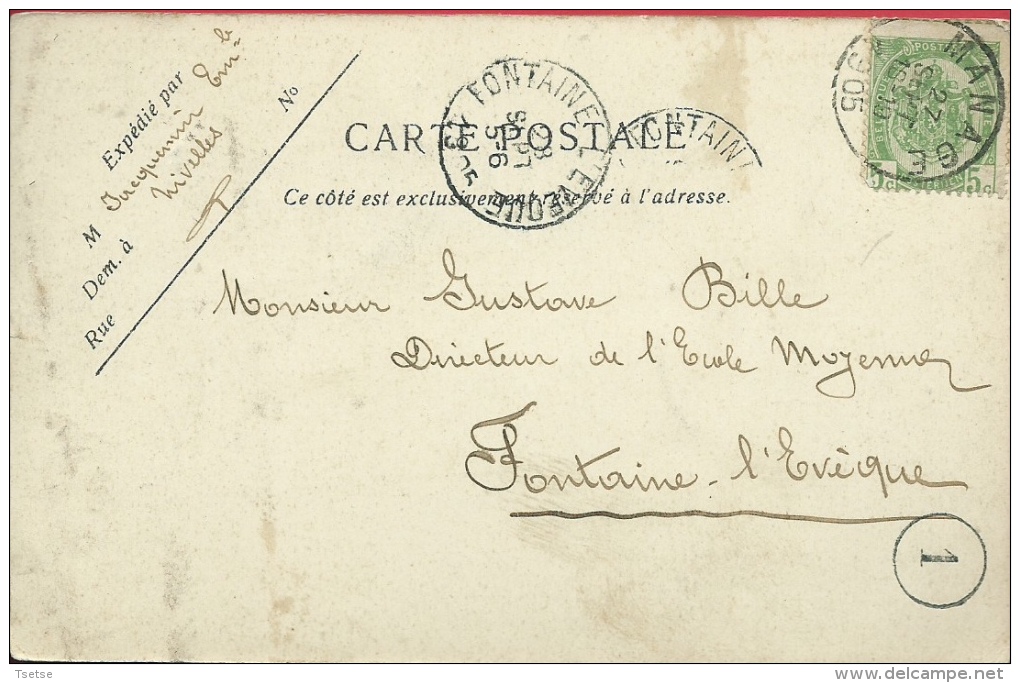 Expédié par
M Jacquemin Emb
Dem. à Nivelles
Rue
No
CARTE POSTALE
Ce côté est exclusivement réservé à l'adresse.
FONTAINE L'EVEQUE
28
SEPT
5-6
1905
FONTAIN
MANAGE
27
SEPT
1905
POST
5c 5c
Monsieur Gustave Bille
Directeur de l'Ecole Moyenne
Fontaine-l'Evèque
1
Tsetse
delcampe.net